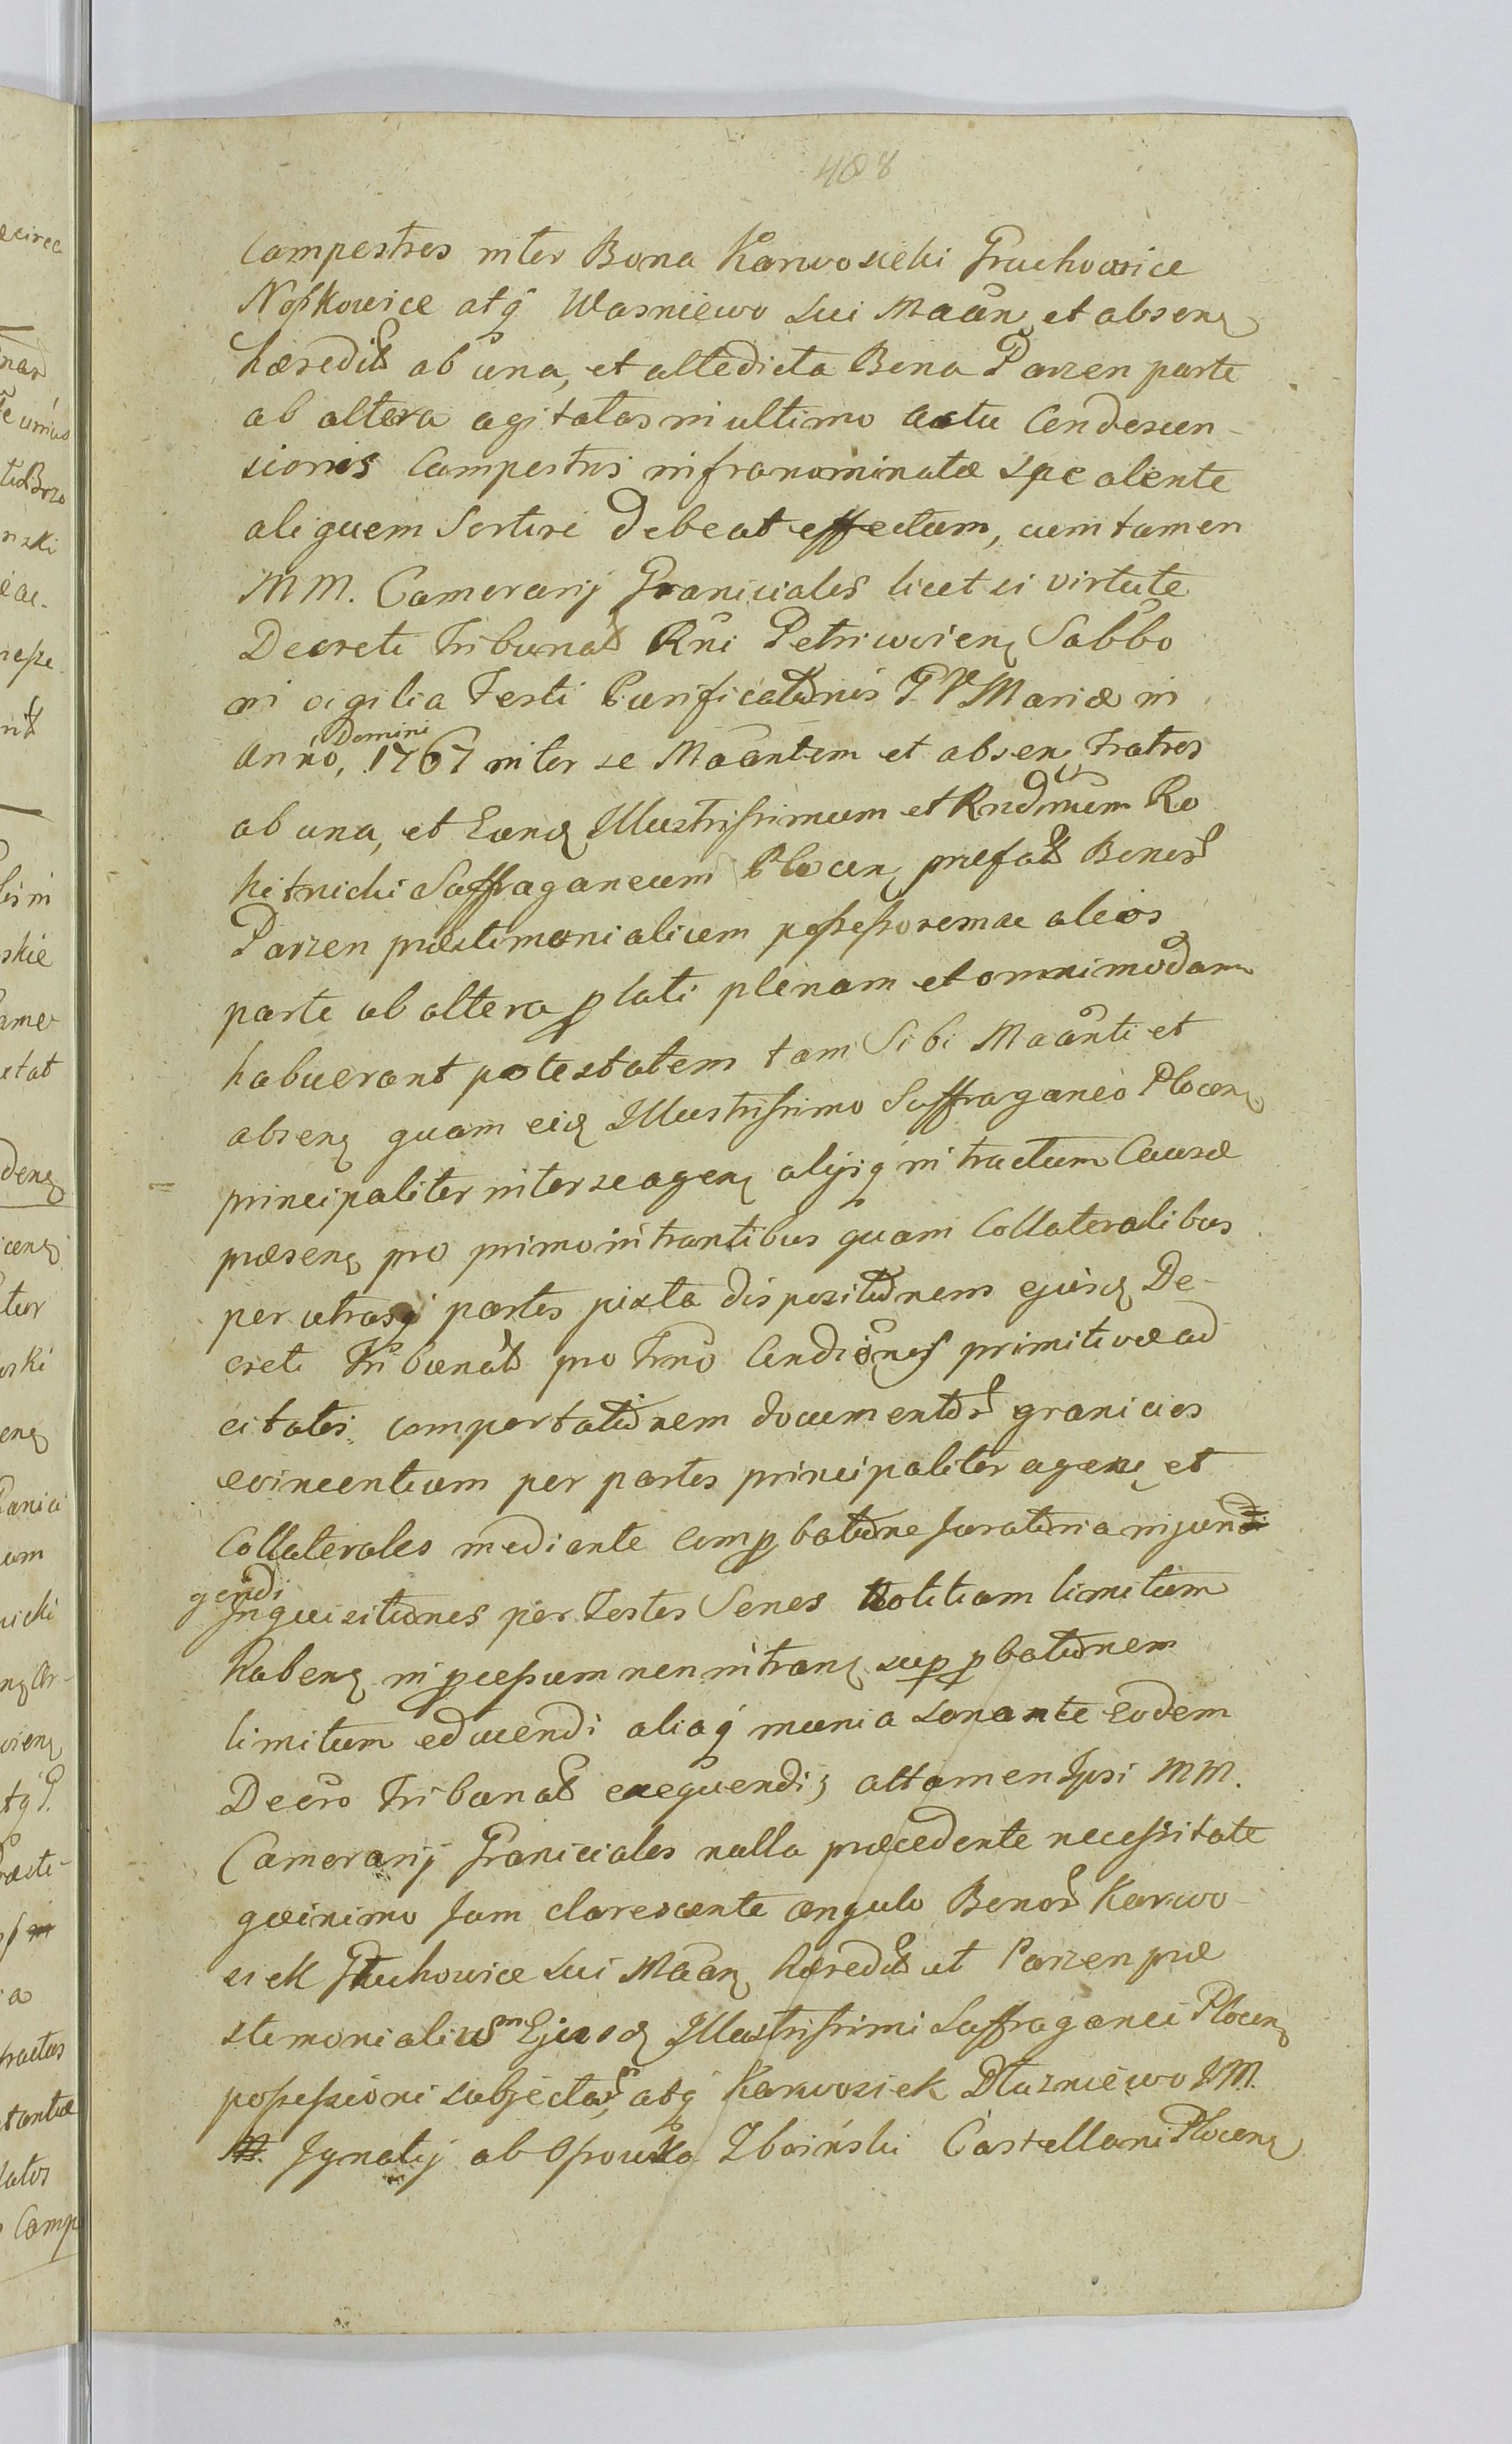 488
campestres inter Bona Karwosieki Gruchowice
Noſkowice atq́ Wasniewo sui Maãn et absen
hæredit ab una, et altedicta Bona Parzen parte
ab altera agitatas in ultimo actu Condescen-
sionis Campestris infranominatæ spe alente
aliquem sortiri debeat effectum, cum tamen
MM. Camerarij Graniciales licet ei virtute
Decreti Tribunal Rñi Petricovien Sabbo
in vigilia Festi Purificatõnis B V Mariæ in
Anno, Domini 1767 inter se Maantem et absen Fratres
ab una, et Eund Illustriſsimum et Rndmum Ro
kitnicki Suffraganeum Plocen præfat Bonor
Parzen præstimonialium poſseſsorem ac alios
parte ab altera plati plenam et omnimodam
habuerant potestatem tam Sibi Maanti et
absen quam eid Illustriſsimo Suffraganeo Plocen
principaliter inter se agen alijsq́ in tractum Causæ
præsen pro primo intrantibus quam Collateralibus
per utrasq́ partes juxta dispositõnem ejusd De-
creti Tribunal pro Tmo Condiõnis primitivæ ad
citatis comportatõnem documentor granicies
evincentium per partes principaliter agen et
Collaterales mediante comp batõne juratõria injun
gendi
Inquisitiones per Testes Senes Notitiam limitum
haben in pceſsum non intran sup pbatõnem
limitum educendi aliaq́ munia sonante eodem
Decro Tribunal exequendi, attamen Ipsi MM.
Camerarij Graniciales nulla præcedente neceſsitate
quinimo jam clarescente angulo Bonor Karwo-
siek Gruchowice sui Maan hæredit ut Parzen præ
stimonialium Ejusd Illustriſsimi Suffraganei Plocen
poſseſsioni subjectar, atq́ Karwosiek Dłuzniewo J M.
Ignatij ab Ossowka Zboiński Castellani Plocen